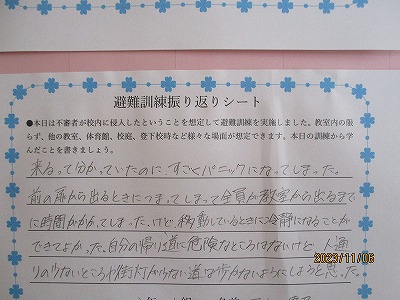 避難訓練振り返りシート
●本日は不審者が校内に侵入したということを想定して避難訓練を実施しました。教室内の限
らず、他の教室、体育館、校庭、登下校時など様々な場面が想定できます。本日の訓練から学
んだことを書きましょう。
来るって分かっていたのに、すごくパニックになってしまった。
前の扉から出るときにつまってしまって全員が教室から出るまで
に時間がかかってしまった。けど、移動しているときに冷静になることが
できてよかった。自分の帰り道に危険なところはないけど、人通
りの少ないところや街灯が少ない道は歩かないようにしようと思った。
2023/11/06